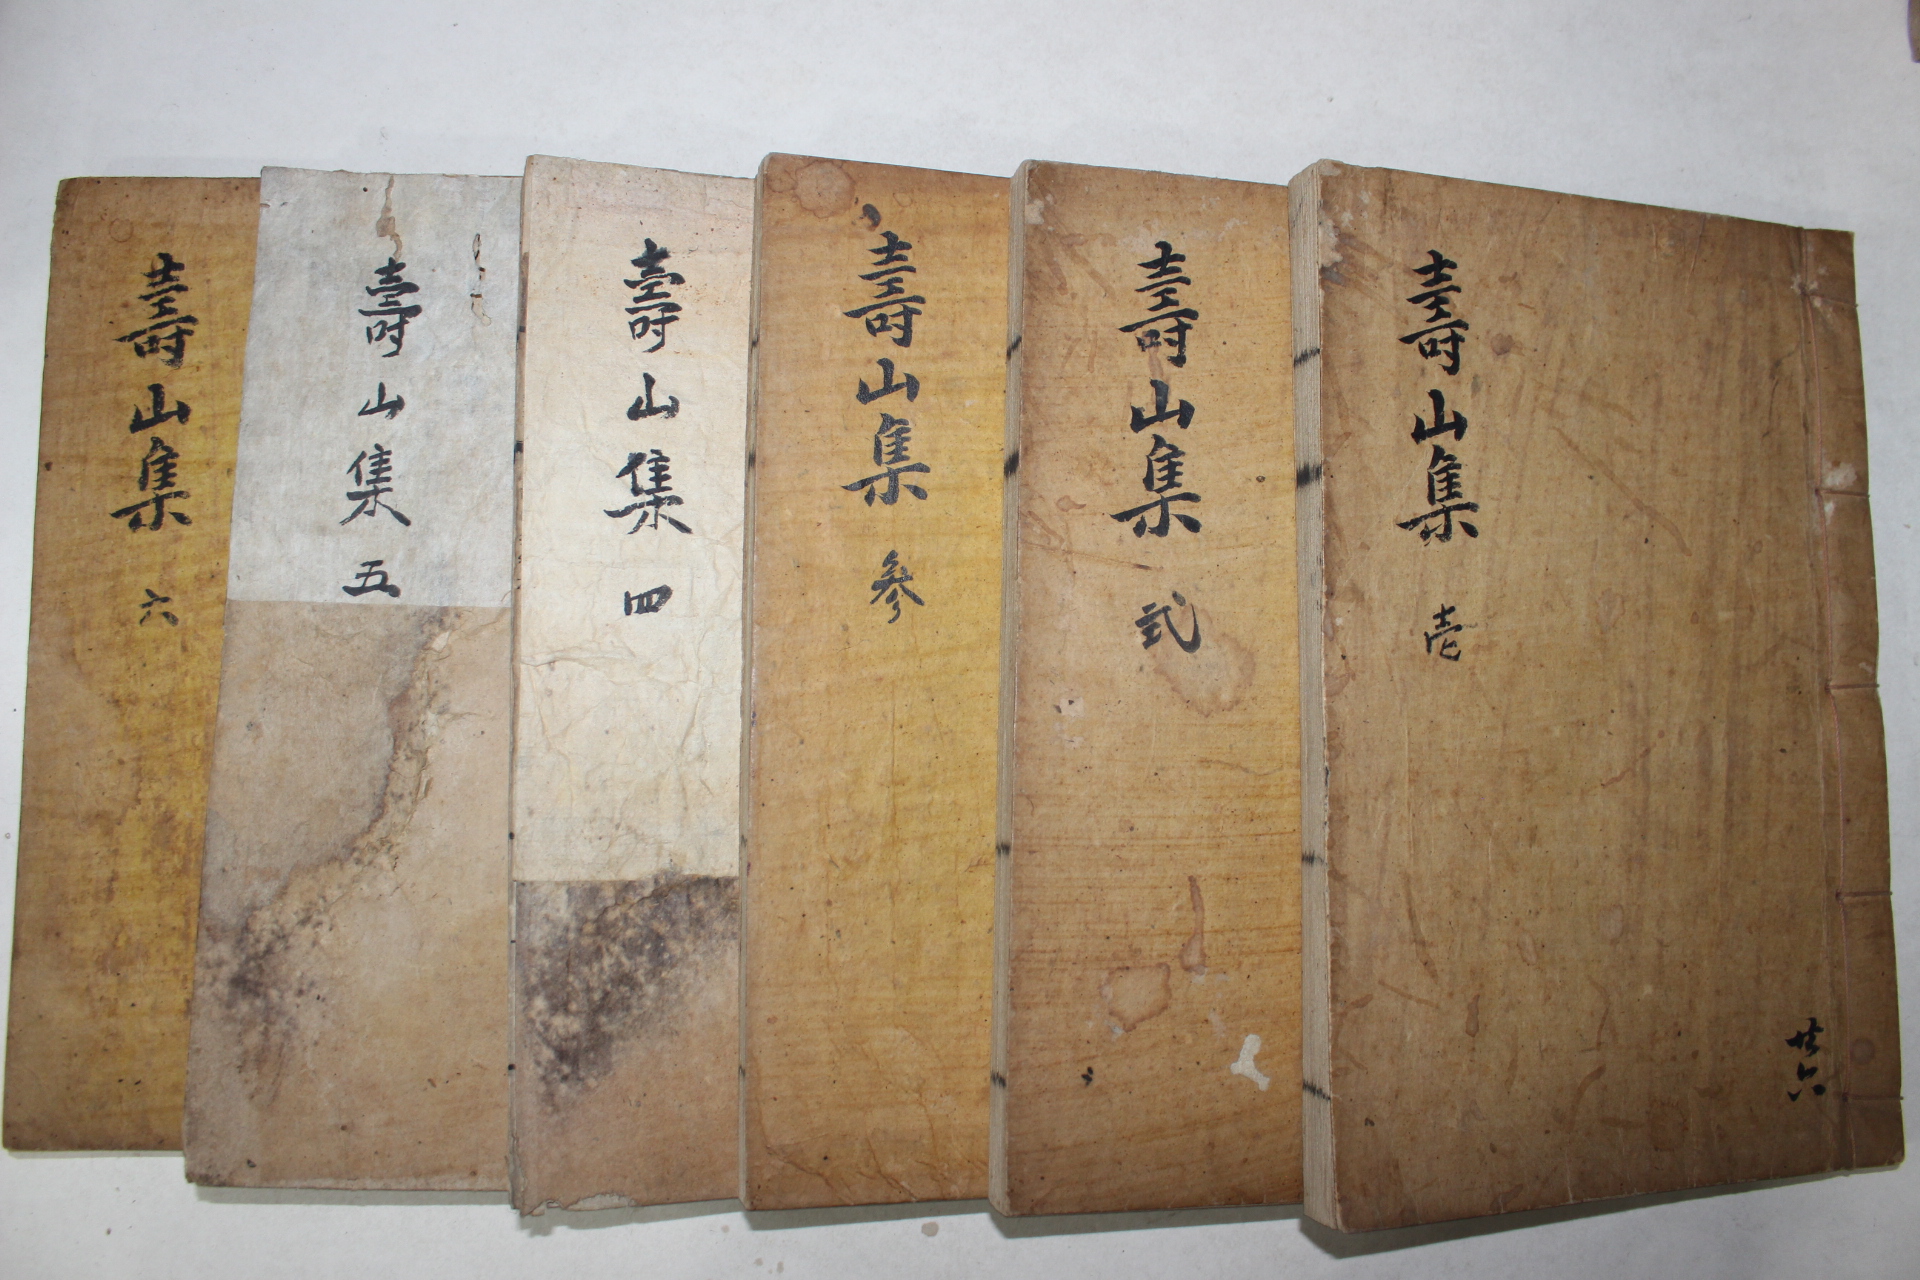 壽山集 壱
廿六
壽山集 弍
壽山集 參
壽山集 四
壽山集 五
壽山集 六